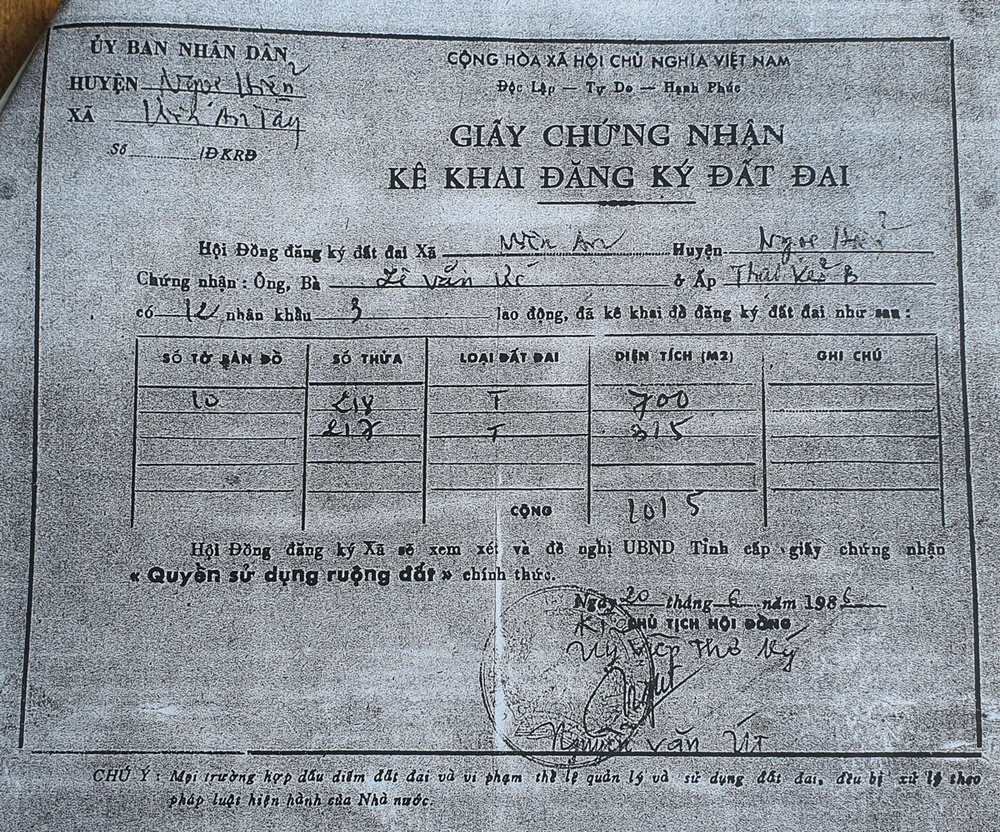 ỦY BAN NHÂN DÂN
HUYỆN Ngọc Hiển
XÃ An Tây
Số ............/ĐKRĐ
CỘNG HÒA XÃ HỘI CHỦ NGHĨA VIỆT NAM
Độc Lập — Tự Do — Hạnh Phúc
GIẤY CHỨNG NHẬN
KÊ KHAI ĐĂNG KÝ ĐẤT ĐAI
Hội Đồng đăng ký đất đai Xã Viên An Huyện Ngọc Hiển
Chứng nhận : Ông, Bà Lê Văn ở Ấp B
có 12 nhân khẩu 3 lao động, đã kê khai để đăng ký đất đai như sau :
SỐ TỜ BẢN ĐỒ SỐ THỬA LOẠI ĐẤT ĐAI DIỆN TÍCH (M2) GHI CHÚ
10 218 T 700
217 T 315
CỘNG 1015
Hội Đồng đăng ký Xã sẽ xem xét và đề nghị UBND Tỉnh cấp giấy chứng nhận
« Quyền sử dụng ruộng đất » chính thức.
Ngày 20 tháng 6 năm 198
CHỦ TỊCH HỘI ĐỒNG
Thư Ký
Nguyễn Văn Út
CHÚ Ý : Mọi trường hợp dấu diếm đất đai và vi phạm thể lệ quản lý và sử dụng đất đai, đều bị xử lý theo
pháp luật hiện hành của Nhà nước.